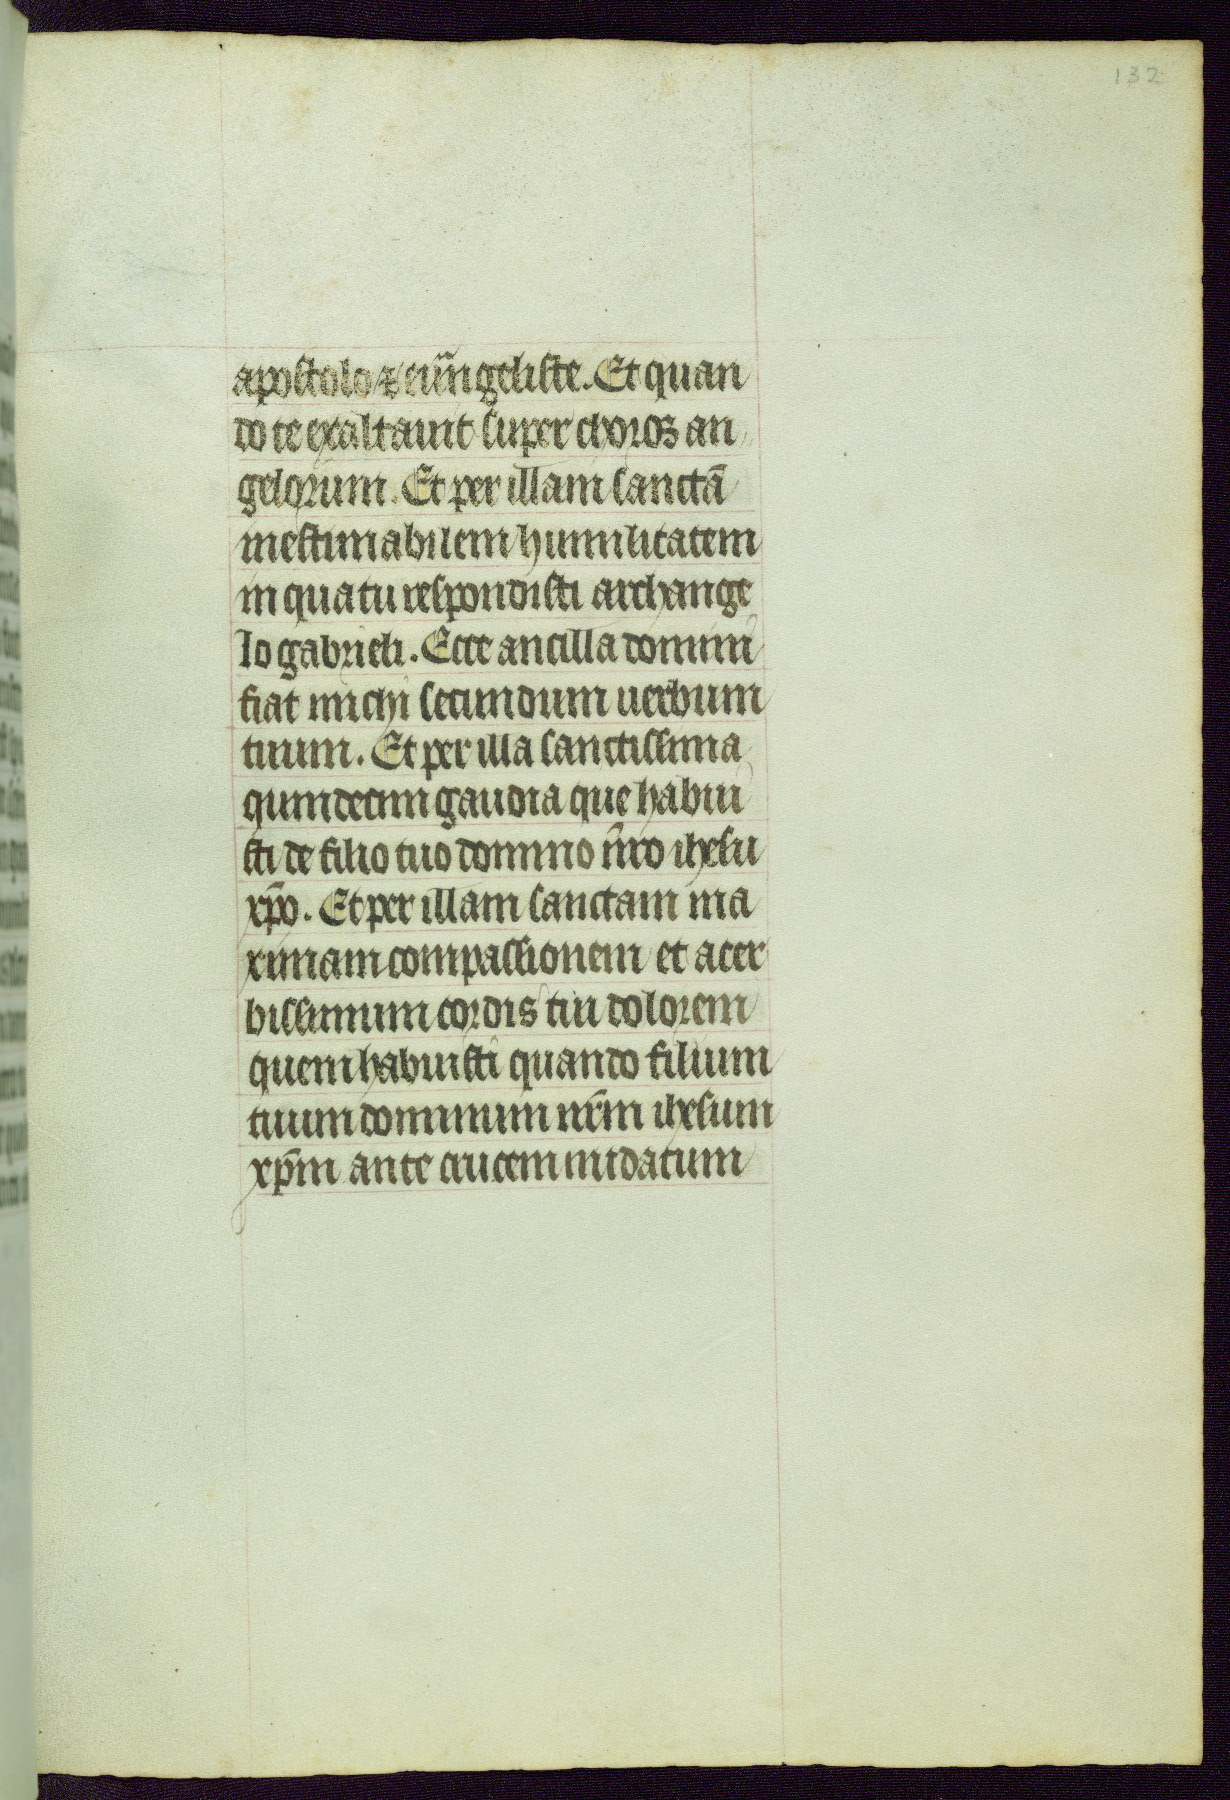 132
apostolo ⁊ eu̅ngeliste. Et quan
do te exaltauit super choros an
gelorum. Et per illam sanctā
inestimabilem humilitatem
in qua tu respondisti archange
lo gabrieli. Ecce ancilla domini
fiat michi secundum uerbum
tuum. Et per illa sanctissima
quindecim gaudia que habui
sti de filio tuo domino nr̄o ihesu
xp̄o. Et per illam sanctam ma
ximam compassionem et acer
bissimum cordis tui dolorem
quem habuisti quando filium
tuum dominum nr̄m ihesum
xp̄m ante crucem nudatum